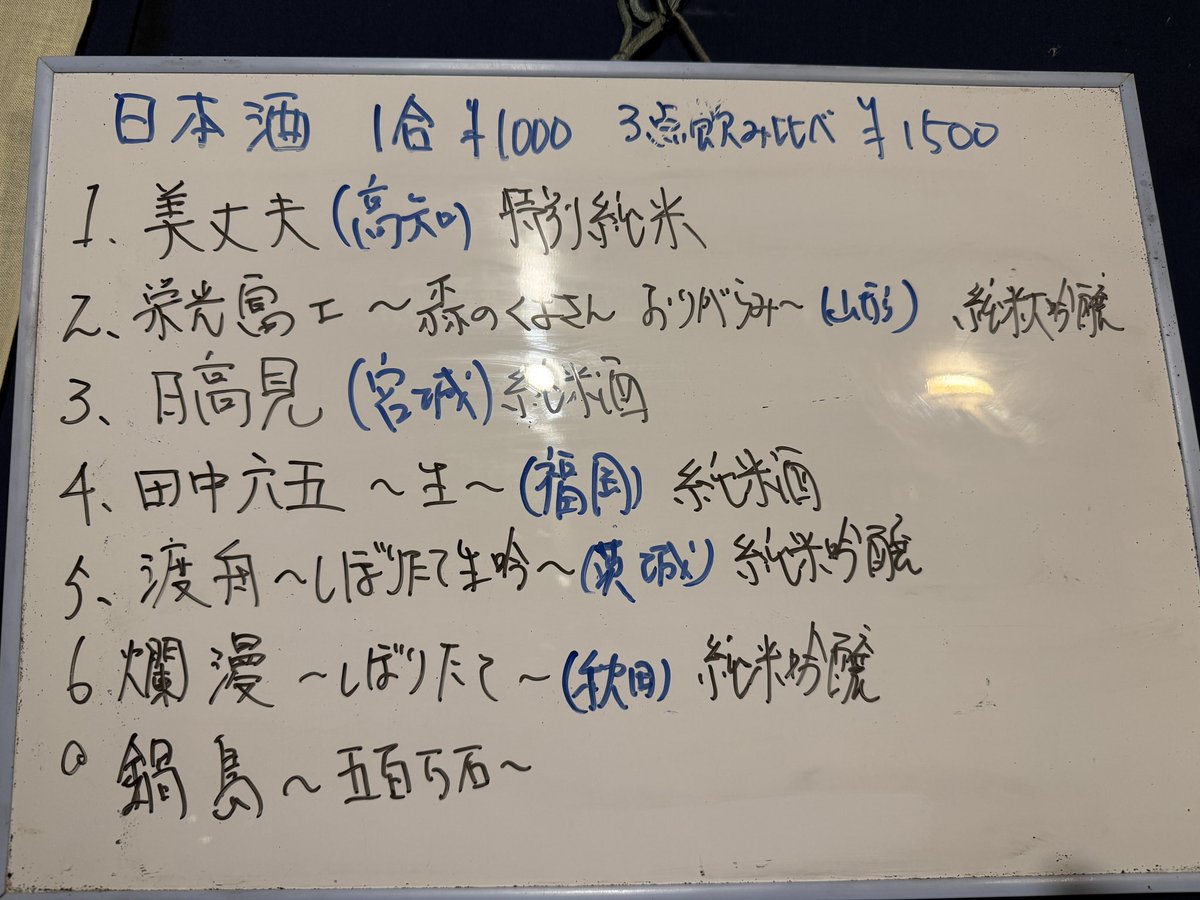 日本酒 1合 ¥1000 3点飲み比べ ¥1500
1、美丈夫(高知) 特別純米
2、栄光冨士 〜森のくまさん おりがらみ〜(山形) 純米大吟醸
3、日高見(宮城)純米酒
4、田中六五 〜生〜(福岡) 純米酒
5、渡舟〜しぼりたて生吟〜(茨城) 純米吟醸
6 爛漫 〜しぼりたて〜(秋田) 純米吟醸
鍋島〜五百万石〜